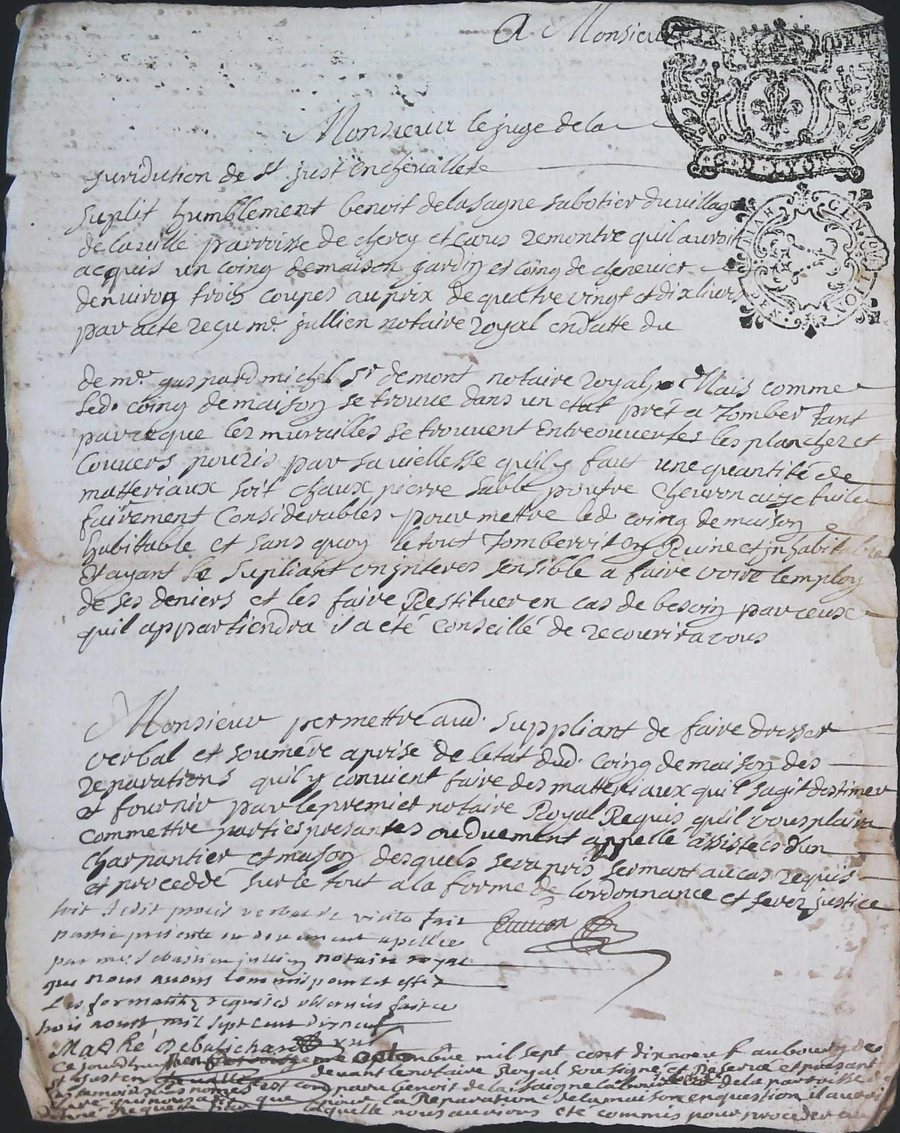 A Monsieur
Monsieur le juge de la
juridiction de St just en chevallet
Suplit humblement benoit de la sagne sabotier du village
de la ville parroisse de cherey et vous remontre quil auroit
acquis un coing de maison jardin et coing de chenevier
denviron trois coupes au prix de quattre vingt et dix livres
par acte recu me jullien notaire royal en datte du
de me gaspard michel Sr demont notaire royal Mais comme
led. coing de maison se trouve dans un etat prêt a tomber tant
parceque les murailles se trouvent entreouvertes les plancher et
couvers pouris par sa viellesse quil y faut une quantité de
matteriaux soit chaux pierre sable poutre chevron tuile
fairement Considerables pour metre led coing de maison
habitable et sans quoy le tout tomberoit en Ruine et inhabitable
Et ayant le supliant un interes sensible a faire voir lemploy
de ses deniers et les faire Restituer en cas de besoin par ceux
quil appartiendra il a eté conseillé de recourir a vous
Monsieur permettre aud. suppliant de faire dresser
verbal et soumére aprise de letat dud. coing de maison des
reparations quil y convient faire des matteriaux quil sagit destimer
et fournir par le premier notaire Royal Requis quil vous plaira
commettre parties presantes ou duement appellé assistées dun
charpantier et mason desquels sera pris sermant au cas requis
et proceddé sur le tout a la forme de lordonnance et serez justice
soit dedit proces verbal de visite fait
partie presente ou duement apellée
par me sebastien jullien notaire royal
que nous avons commis pour cet effet
Les formalitz requises observées fait ce
trois aoust mil sept cent dixneuf
ce jourdhuy septembre mil sept cent dixneuf au bourg de
St just en chevallet devant le notaire Royal sousigné et Reservé et presant
les temoins est comparu benoit de la saigne de la parroisse
que pour la Reparation de la maison en question il auroit
Requete laquelle nous aurions eté commis pour proceder